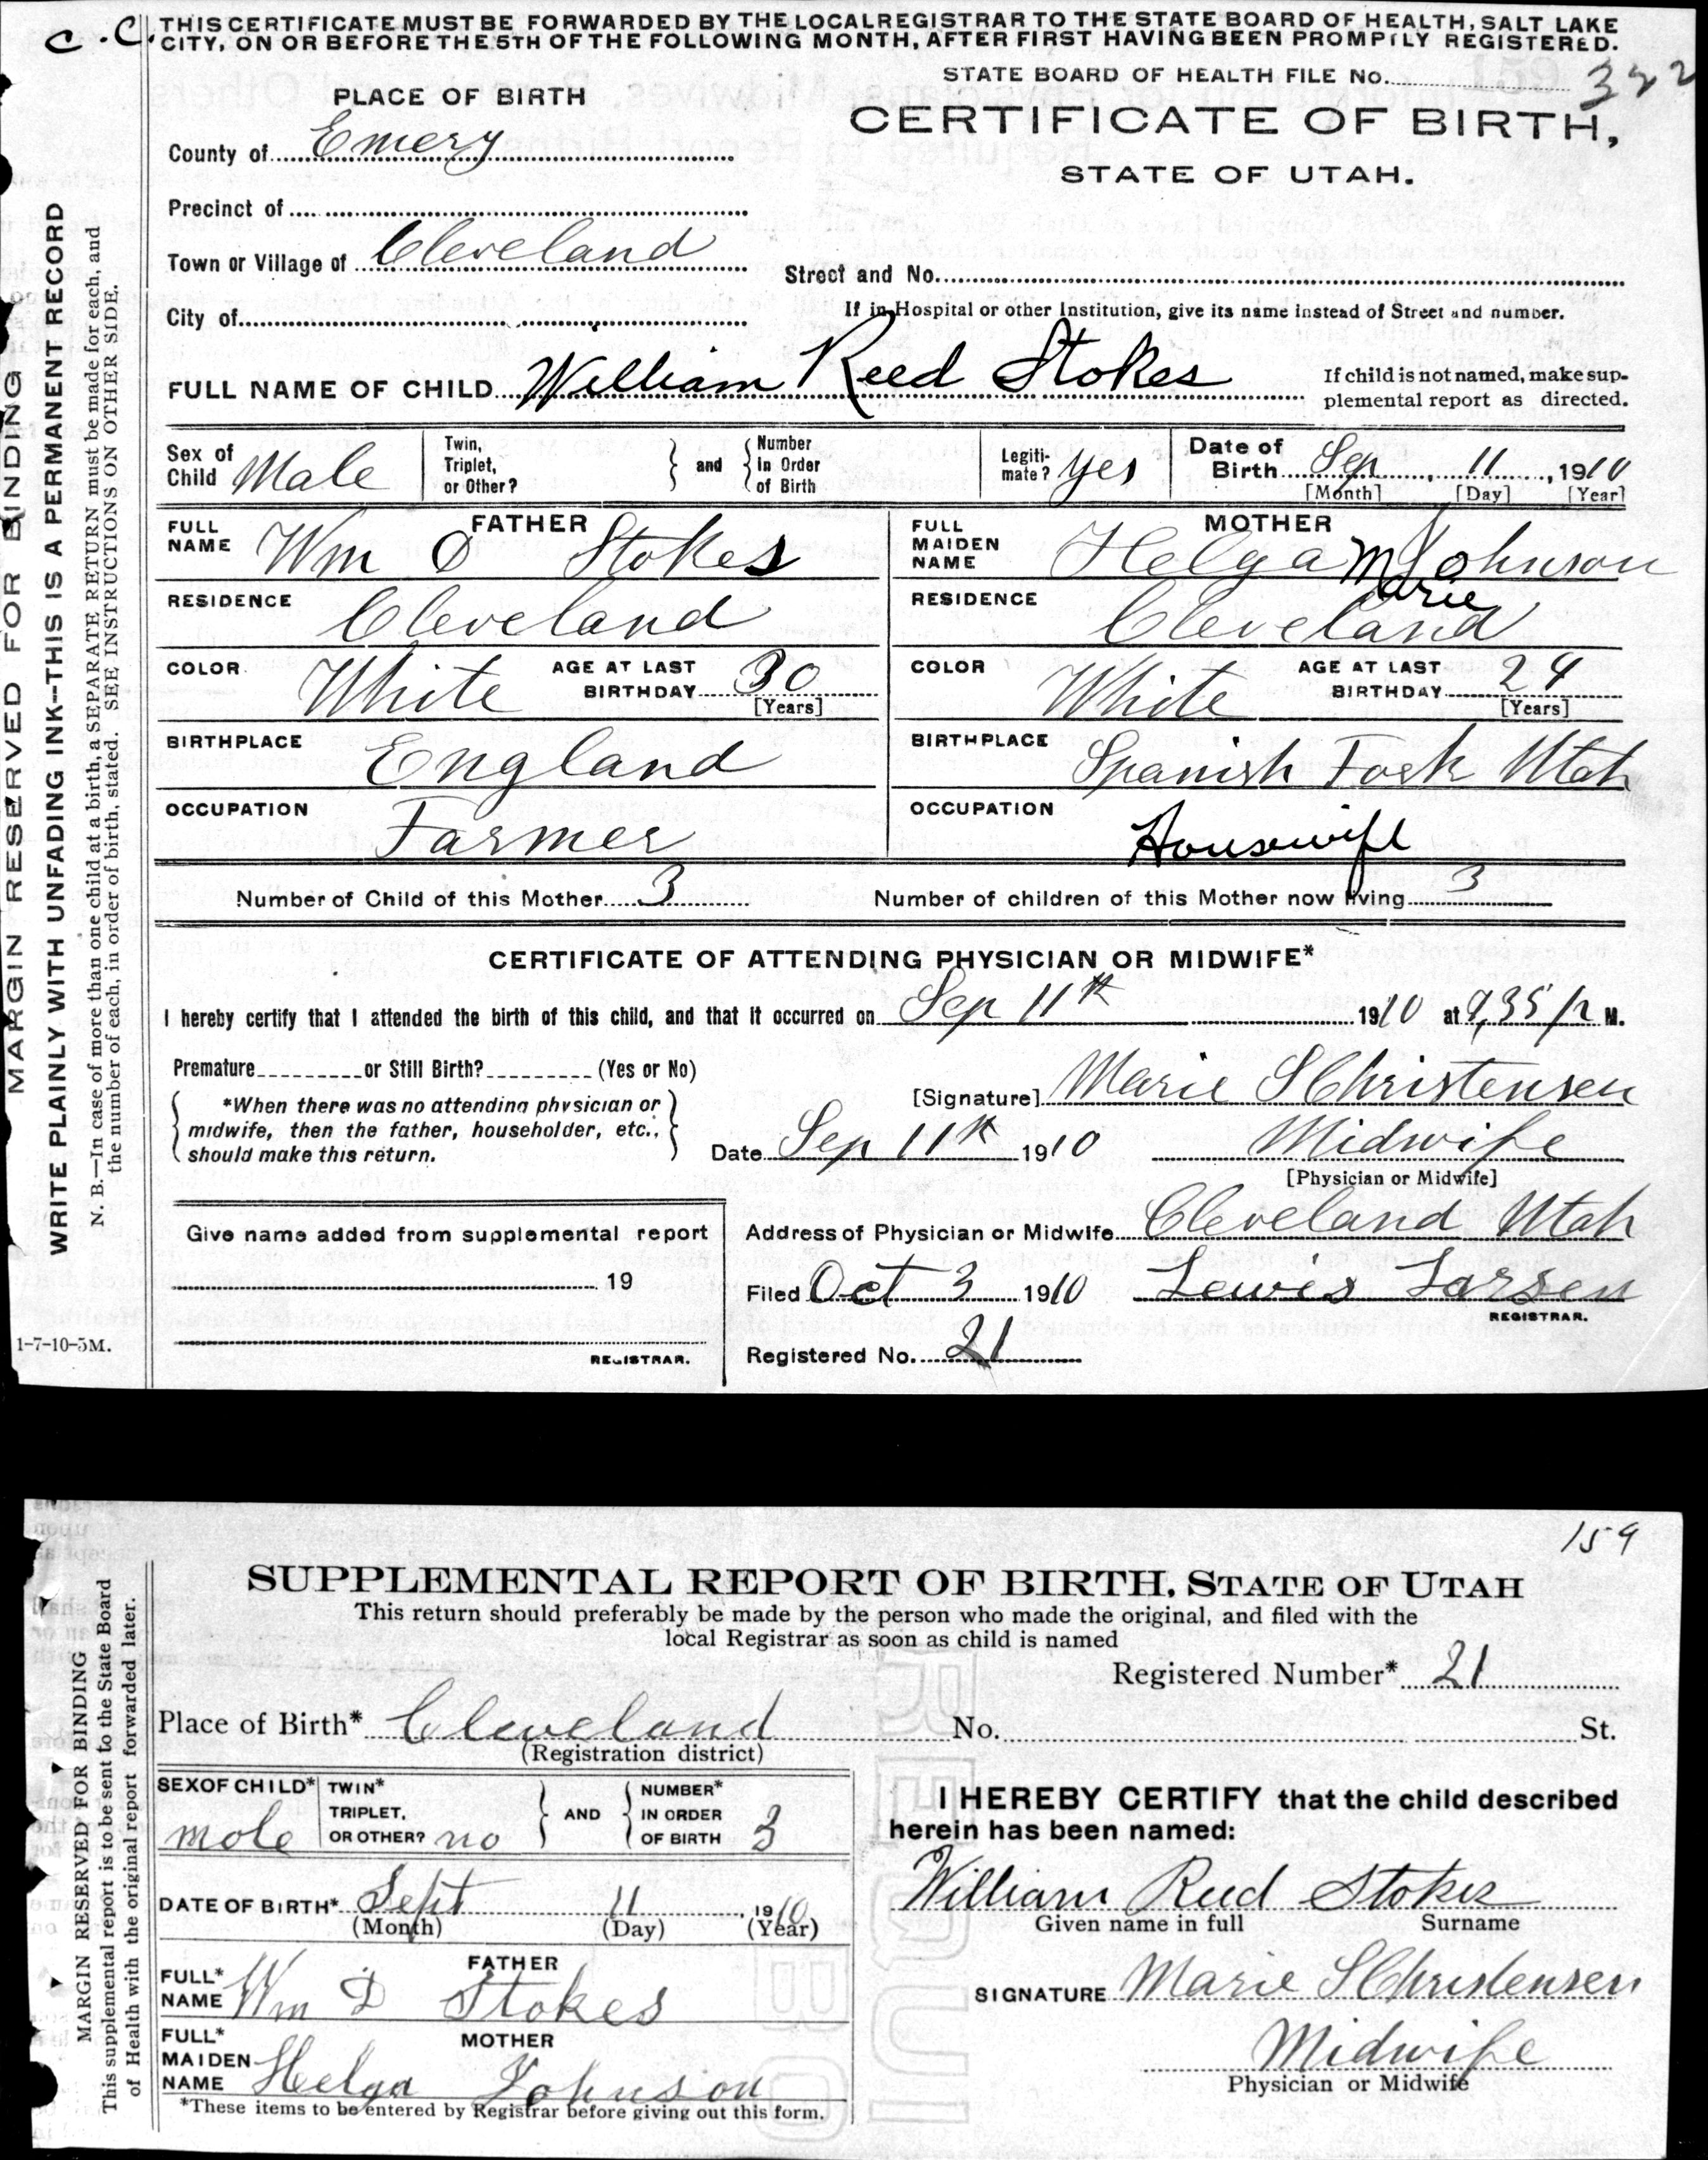 C.C.
THIS CERTIFICATE MUST BE FORWARDED BY THE LOCAL REGISTRAR TO THE STATE BOARD OF HEALTH, SALT LAKE
CITY, ON OR BEFORE THE 5TH OF THE FOLLOWING MONTH, AFTER FIRST HAVING BEEN PROMPTLY REGISTERED.
STATE BOARD OF HEALTH FILE No. 322
PLACE OF BIRTH
CERTIFICATE OF BIRTH,
STATE OF UTAH.
County of Emery
Precinct of
Town or Village of Cleveland
Street and No.
City of
If in Hospital or other Institution, give its name instead of Street and number.
FULL NAME OF CHILD William Reed Stokes
If child is not named, make sup-
plemental report as directed.
Sex of Child Male
Twin, Triplet, or Other?
and
Number In Order of Birth
Legiti-mate? yes
Date of Birth Sep 11, 1910
[Month] [Day] [Year]
FATHER
FULL NAME Wm D Stokes
MOTHER
FULL MAIDEN NAME Helga M Johnson
Marie
RESIDENCE Cleveland
RESIDENCE Cleveland
COLOR White AGE AT LAST BIRTHDAY 30 [Years]
COLOR White AGE AT LAST BIRTHDAY 24 [Years]
BIRTHPLACE England
BIRTHPLACE Spanish Fork Utah
OCCUPATION Farmer
OCCUPATION Housewife
Number of Child of this Mother 3
Number of children of this Mother now living 3
CERTIFICATE OF ATTENDING PHYSICIAN OR MIDWIFE*
I hereby certify that I attended the birth of this child, and that it occurred on Sep 11th 1910 at 9,35 P M.
Premature or Still Birth? (Yes or No)
*When there was no attending physician or
midwife, then the father, householder, etc.,
should make this return.
[Signature] Marie S Christensen
Date Sep 11th 1910 Midwife
[Physician or Midwife]
Give name added from supplemental report
19
REGISTRAR.
Address of Physician or Midwife Cleveland Utah
Filed Oct 3 1910 Lewis Larsen
REGISTRAR.
Registered No. 21
MARGIN RESERVED FOR BINDING
WRITE PLAINLY WITH UNFADING INK--THIS IS A PERMANENT RECORD
N. B.—In case of more than one child at a birth, a SEPARATE RETURN must be made for each, and
the number of each, in order of birth, stated. SEE INSTRUCTIONS ON OTHER SIDE.
1-7-10-5M.
159
SUPPLEMENTAL REPORT OF BIRTH, STATE OF UTAH
This return should preferably be made by the person who made the original, and filed with the
local Registrar as soon as child is named
Registered Number* 21
Place of Birth* Cleveland No. St.
(Registration district)
SEX OF CHILD* male
TWIN* TRIPLET, OR OTHER? no
AND
NUMBER* IN ORDER OF BIRTH 3
DATE OF BIRTH* Sept 11, 1910
(Month) (Day) (Year)
FATHER
FULL* NAME Wm D Stokes
MOTHER
FULL* MAIDEN NAME Helga Johnson
*These items to be entered by Registrar before giving out this form.
I HEREBY CERTIFY that the child described
herein has been named:
William Reed Stokes
Given name in full Surname
SIGNATURE Marie S Christensen
Midwife
Physician or Midwife
MARGIN RESERVED FOR BINDING
This supplemental report is to be sent to the State Board
of Health with the original report forwarded later.